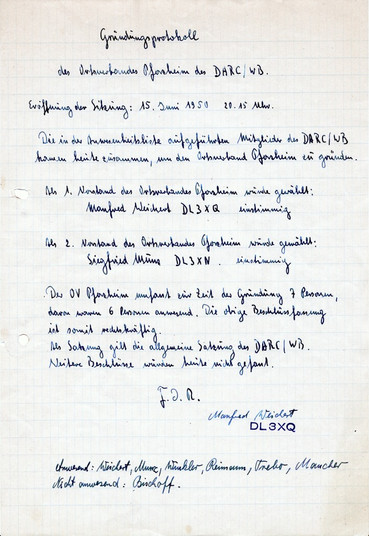 Gründungsprotokoll
des Ortsverbandes Pforzheim des DARC/WB.
Eröffnung der Sitzung: 15. Juni 1950 20.15 Uhr.
Die in der Anwesenheitsliste aufgeführten Mitglieder des DARC/WB
kamen heute zusammen, um den Ortsverband Pforzheim zu gründen.
Als 1. Vorstand des Ortsverbandes Pforzheim wurde gewählt:
Manfred Weichert DL3XQ einstimmig
Als 2. Vorstand des Ortsverbandes Pforzheim wurde gewählt:
Siegfried DL3XN. einstimmig
Der OV Pforzheim umfasst zur Zeit der Gründung 7 Personen,
davon waren 6 Personen anwesend. Die obige Beschlussfassung
ist somit rechtskräftig.
Als Satzung gilt die allgemeine Satzung des DARC/WB.
Weitere Beschlüsse wurden heute nicht gefasst.
F.d.R.
Manfred Weichert
DL3XQ
Anwesend: Weichert, Winkler, Reimann,
Nicht anwesend: Bischoff.